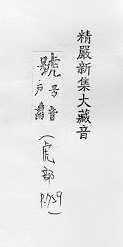 精嚴新集大藏音
號号音
戶羔
(虎部
P.759)